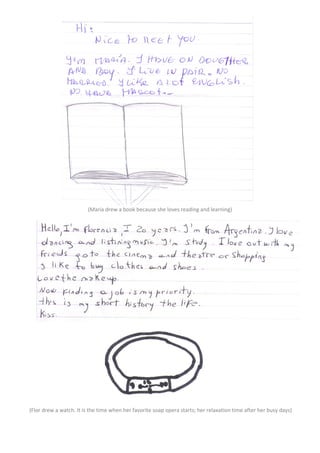 Hi:
Nice to neet you
I'm Maria. I have on doughter
and Boy. I live in pair. No
married. I like a lot English.
No have mascot.-
(Maria drew a book because she loves reading and learning)
Hello, I'm florencia, I 20 years. I'm from Argentina. I love
dancing and listining music. I'm study. I love out with my
friends go to the cinema and theatre or shopping
I like to buy clothes and shoes.
Love the makeup.
Now finding a job is my priority.
this is my short history the life.
Kiss.
(Flor drew a watch. It is the time when her favorite soap opera starts; her relaxation time after her busy days)